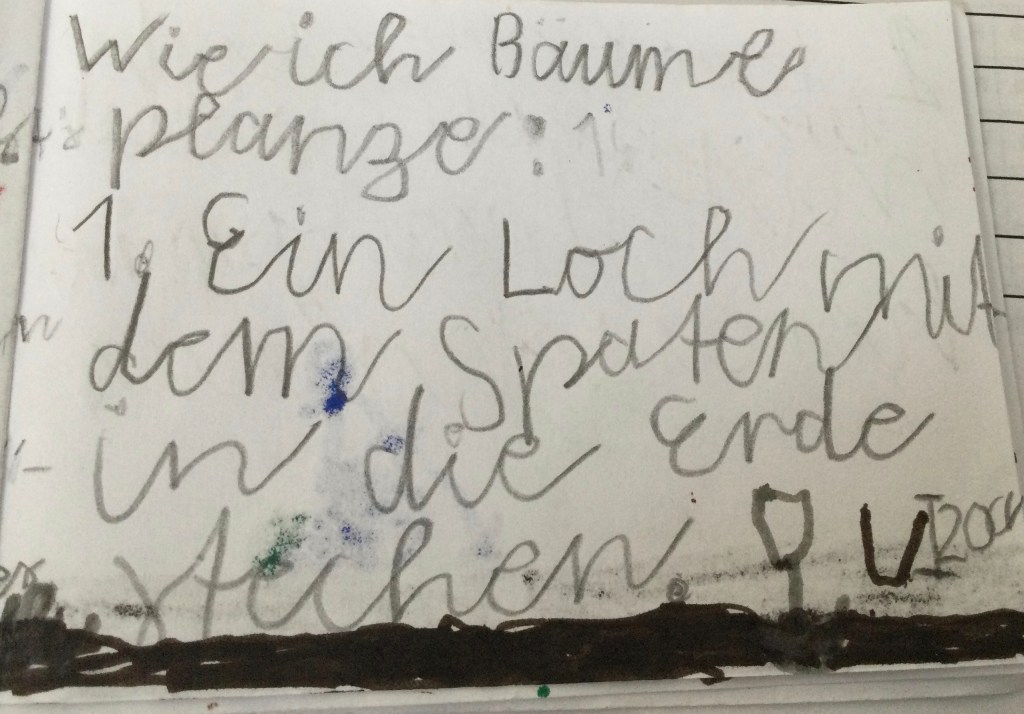 Wie ich Bäume
planze:
1. Ein Loch mit
dem Spaten
in die Erde
stechen.
20cm